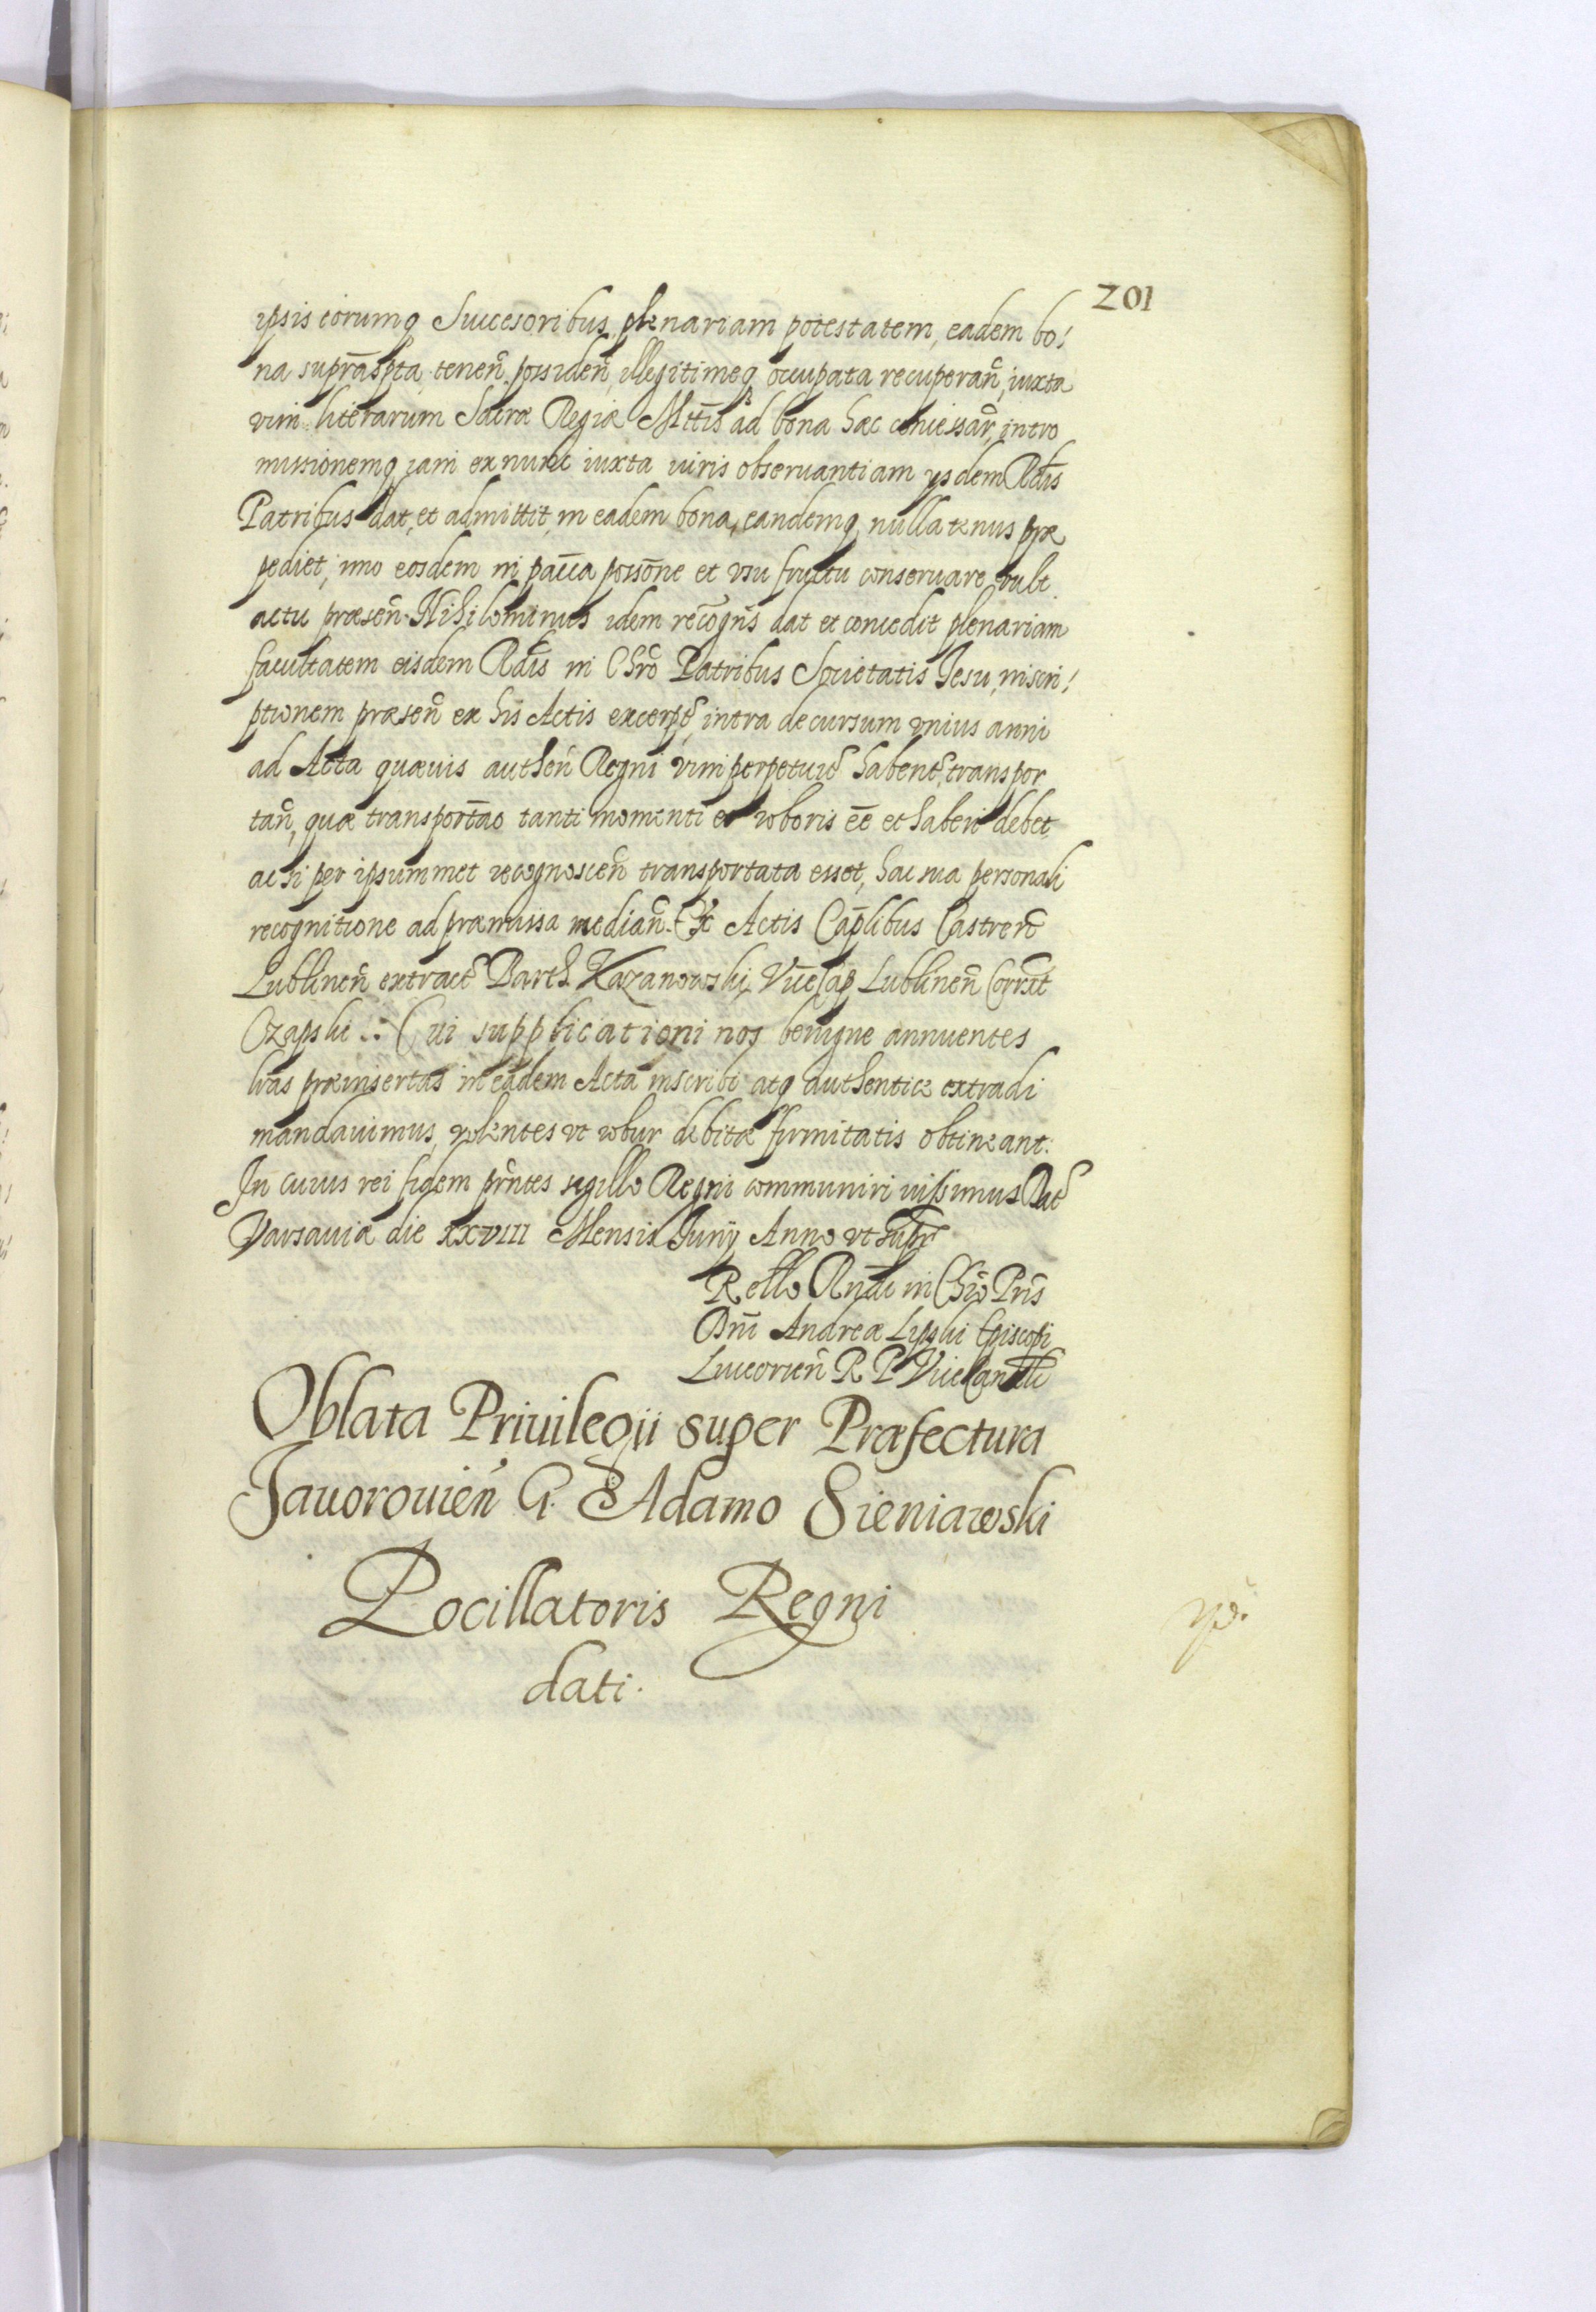 201
ipsis eorumq Succesoribus plenariam potestatem, eadem bo!
na suprāspta tenen̄ possiden̄, illegitimeq occupata recuperan̄, iuxta
vim literarum Sacræ Regiæ Mttis ad bona hæc concessar̄, intro
missionemq iam ex nunc iuxta iuris obseruantiam ysdem Rdis
Patribus dat, et admittit, in eadem bona, eandemq nullatenus præ
pediet, imo eosdem in pācca possōne et vsu fructu conseruare vult
actu præsen̄. Nihilominus idem recōgn̄s dat et concedit plenariam
facultatem eisdem Rdis in Chrō Patribus Societatis Jesu, inscri!
ptionem præsen̄ ex his Actis excerpt, intra decursum vnius anni
ad Acta quæuis authen̄ Regni vim perpetuit habent, transpor
tan̄, quæ transportāo tanti momenti et roboris ēē et haberi debet,
ac si per ipsummet recognoscen̄ transportata esset, hac sua personali
recognitione ad præmissa median̄. Ex Actis Cāplibus Castren̄
Lublinen̄ extract Barth. Kazanowski Vicecap Lublinen̄ Corrxit
Czapski .:. Cui supplicationi nos benigne annuentes
lrās præinsertas in eadem Acta inscribi atq authentice extradi
mandauimus, volentes vt robur debitæ firmitatis obtineant.
In cuius rei fidem prn̄tes sigillo Regni communiri iussimus Dat
Varsauiæ die XXVIII Mensis Junij Anno vt supr
Rello Rn̄di in Chrō Pris
Dn̄i Andreæ Lipski Episcopi
Luceorien̄ R. P. Vicecancell
Oblata Priuilegii super Præfectura
Jauorouien̄ G. Adamo Sieniawski
Pocillatoris Regni
dati.